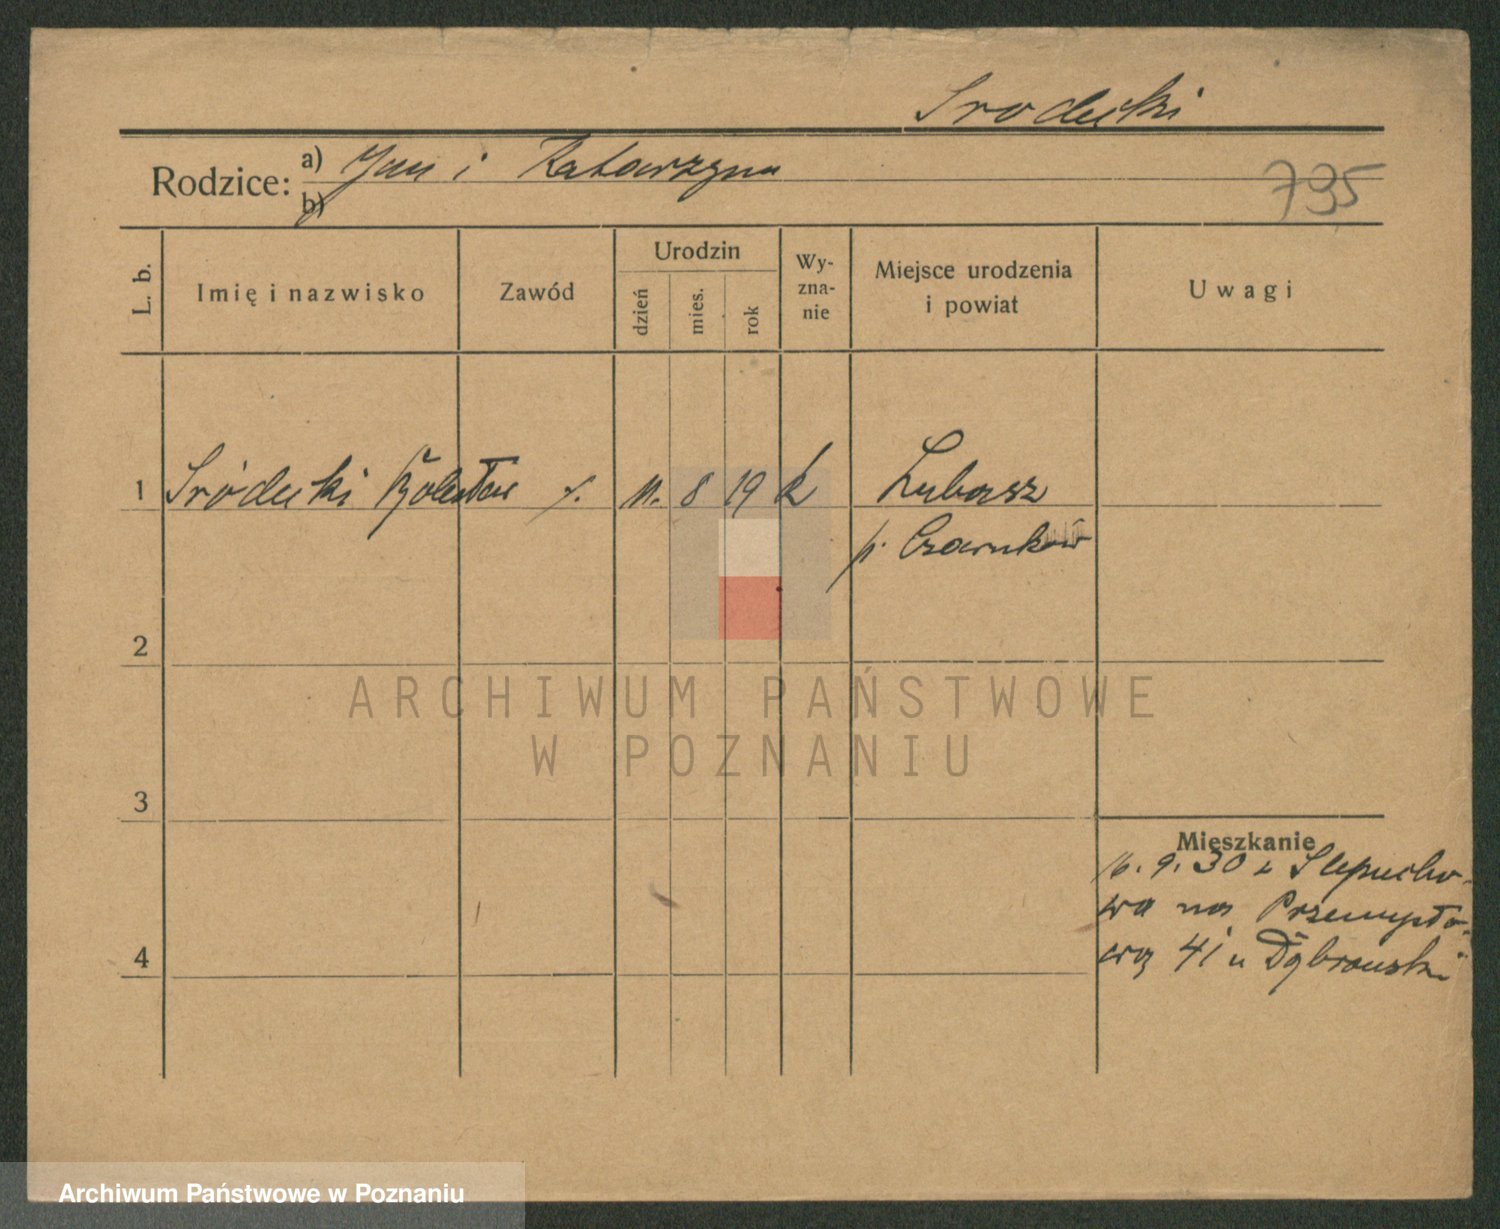 Srodecki
Rodzice:
a) Jan i Katarzyna
b)
795
L. b.
Imię i nazwisko
Zawód
Urodzin
dzień
mies.
rok
Wy-
zna-
nie
Miejsce urodzenia
i powiat
Uwagi
1 Sródecki 11. 8 19 k Lubasz
p. Czarnków
2
ARCHIWUM PAŃSTWOWE
W POZNANIU
3
Mieszkanie
16. 9. 30 z Slepucho-
wa na Przemysło-
wą 41 u Dąbrowski
4
Archiwum Państwowe w Poznaniu